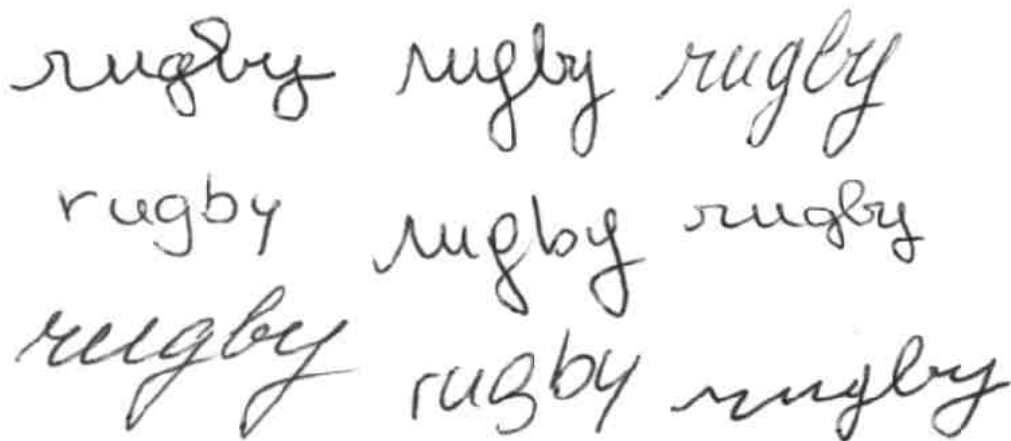 rugby rugby rugby
rugby rugby rugby
rugby rugby rugby